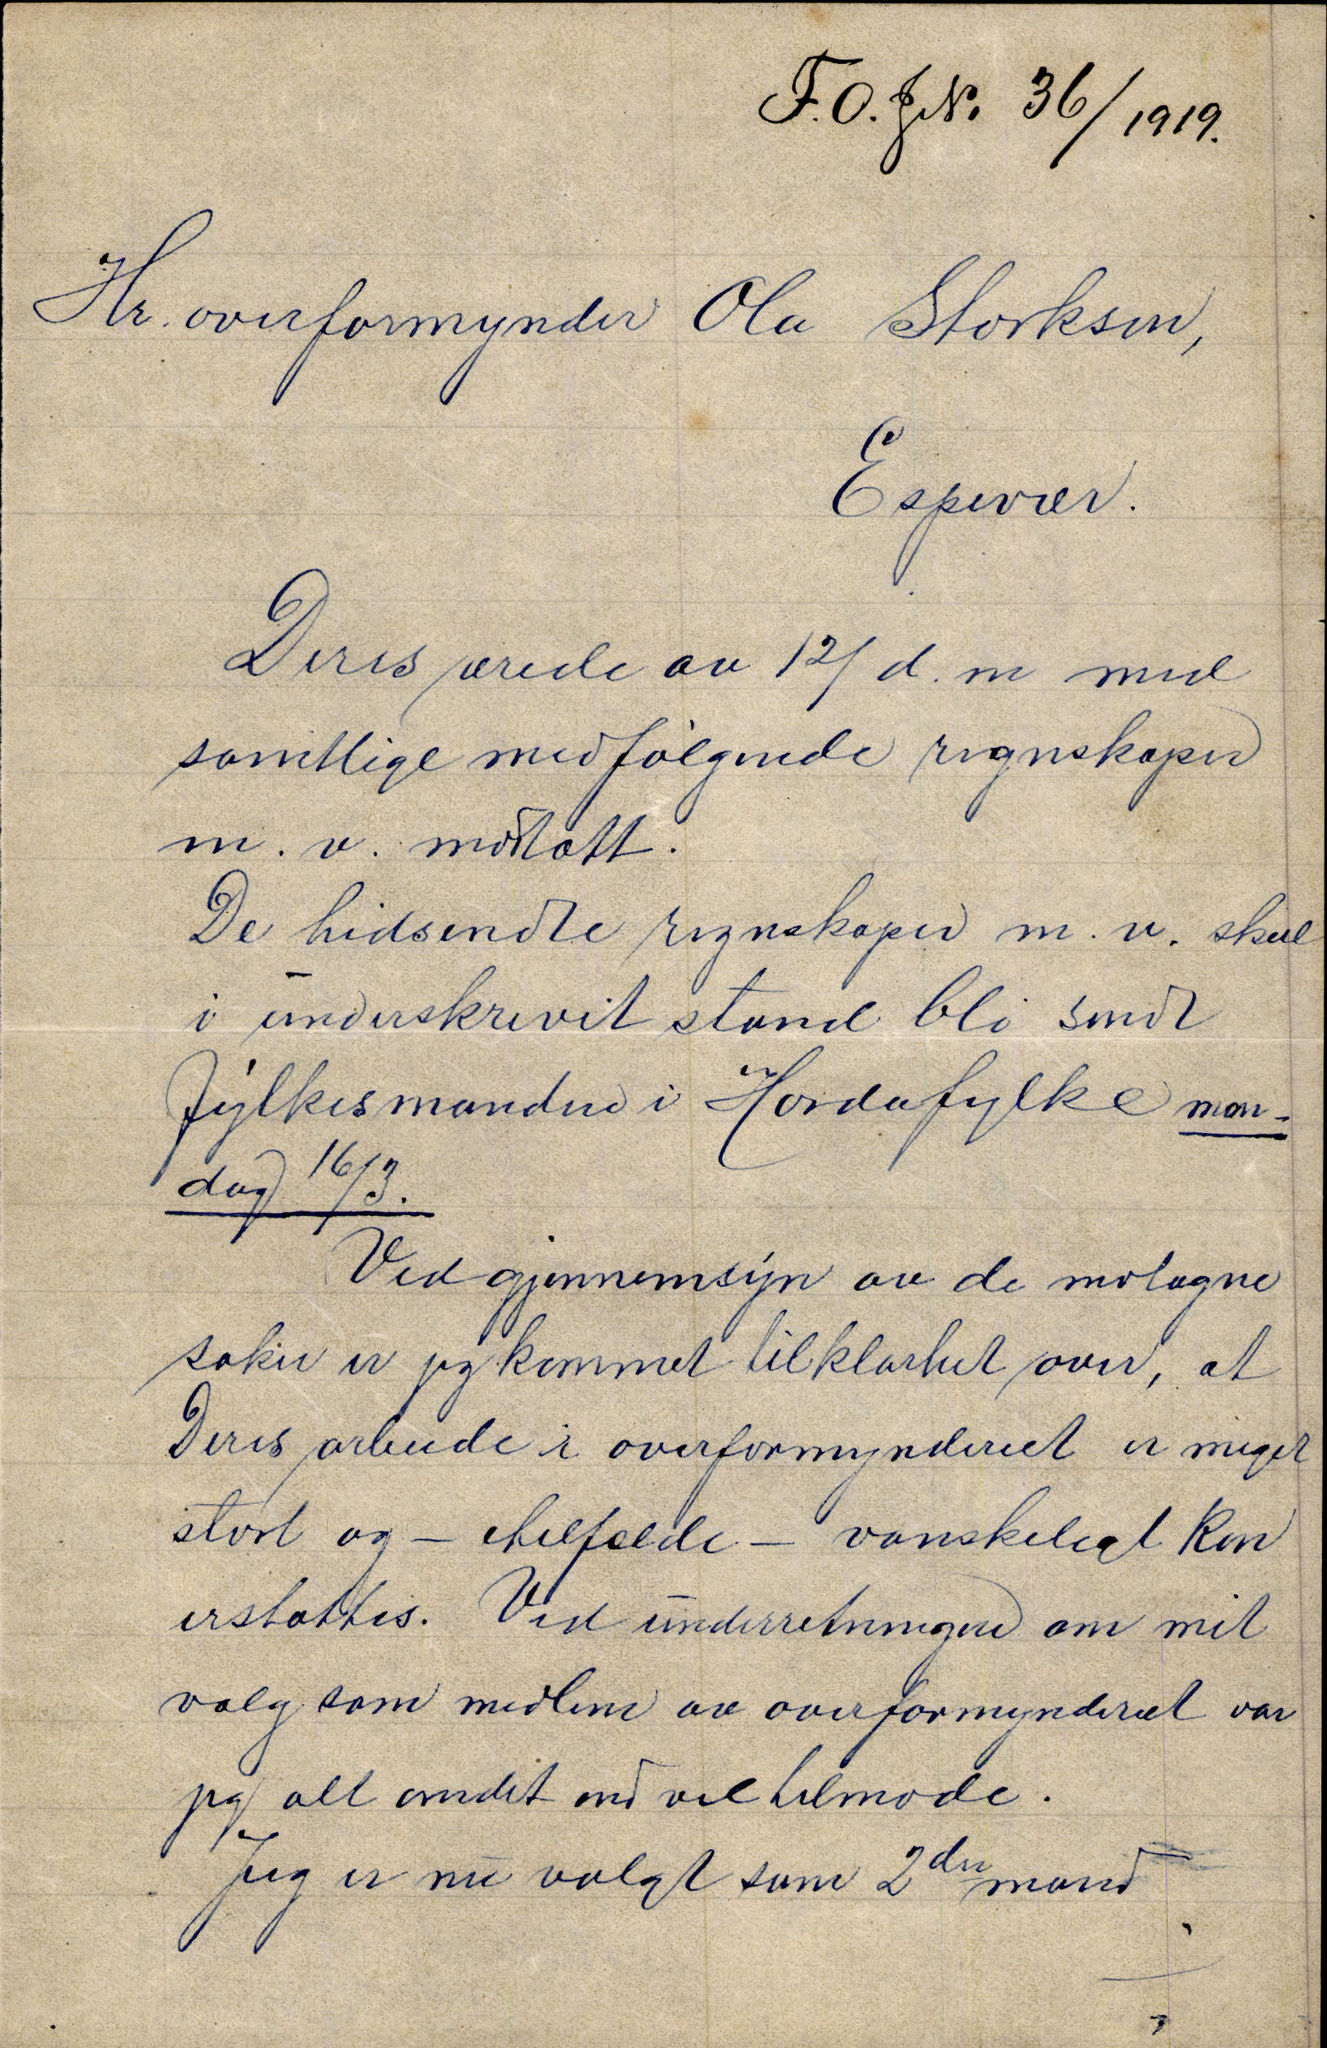 F.O.J.No. 36/1919.
Hr. overformynder Ola Storksen,
Espevær.
Deres ærede av 12/ d. m med
samtlige medfølgende regnskaper
m. v. mottatt.
De hidsendte regnskaper m. v. skal
i underskrevit stand bli sendt
Fylkesmanden i Hordafylke man-
dag 16/3.
Ved gjennemsyn av de motagne
saker er jeg kommet til klarhet over, at
Deres arbeide i overformynderiet er meget
stort og – ihvertfald – vanskelegt kan
erstattes. Ved underretningen om mit
valg som medlem av overformynderiet var
jeg alt andet end vel tilmode.
Jeg er nu valgt som 2den mand